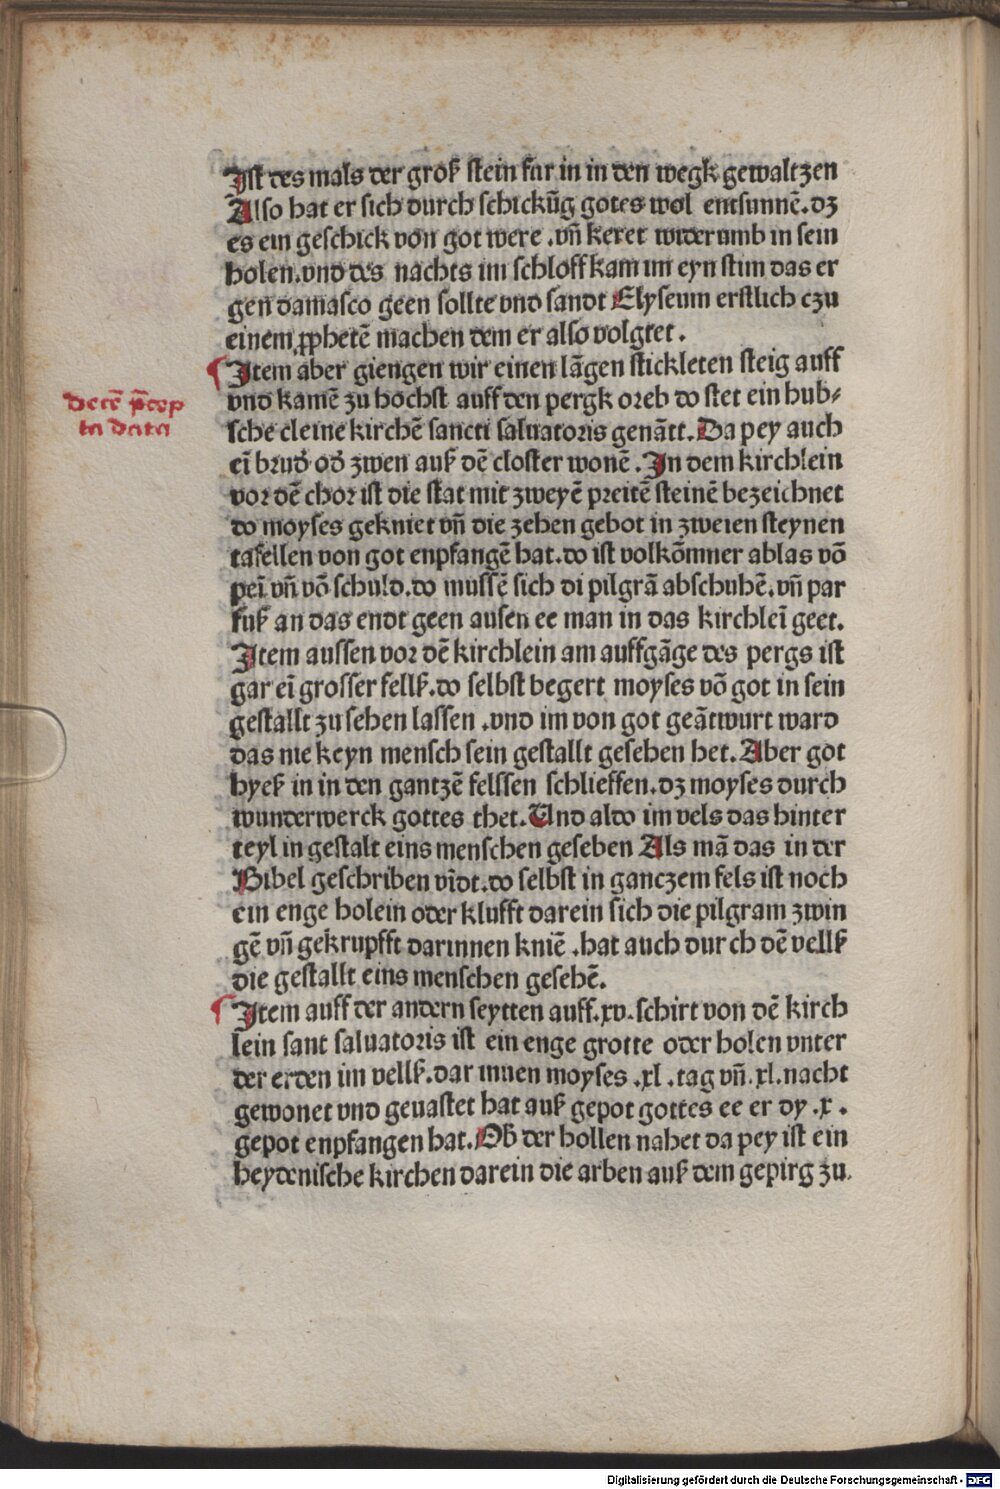 Ist des mals der groß stein fur in in den wegk gewaltzen
Also hat er sich durch schickūg gotes wol entsunnē. dz
es ein geschick von got were . vñ keret widerumb in sein
holen. vnd des nachts im schloff kam im eyn stim das er
gen damasco geen sollte vnd sandt Elyseum erstlich czu
einem ꝓphetē machen dem er also volgtet .
Item aber giengen wir einen lāgen stickleten steig auff
decē p̄cep
vnd kamē zu hochst auff den pergk oreb do stet ein hub⸗
ta data
sche cleine kirchē sancti saluatoris genāt. Da pey auch
eī brud̄ od̄ zwen auß dē closter wonē . In dem kirchlein
vor dē chor ist die stat mit zweyē preitē steinē bezeichnet
do moyses gekniet vñ die zehen gebot in zweien steynen
tafellen von got enpfangē hat. do ist volkōmner ablas vō
peī vñ vō schuld. do mussē sich di pilgrā abschuhē. vñ par
fuß an das endt geen ausen ee man in das kirchleī geet.
Item aussen vor dē kirchlein am auffgāge des pergs ist
gar eī grosser fellß. do selbst begert moyses vō got in sein
gestallt zu sehen lassen . vnd im von got geātwurt ward
das nie keyn mensch sein gestallt gesehen het. Aber got
hyeß in in den gantzē felssen schlieffen. dz moyses durch
wunderwerck gottes thet. Und aldo im vels das hinter
teyl in gestalt eins menschen gesehen Als mā das in der
Bibel geschriben vīdt. do selbst in ganczem fels ist noch
ein enge holein oder klufft darein sich die pilgram zwin
gē vñ gekrupfft darinnen kniē . hat auch durch dē vellß
die gestallt eins menschen gesehē.
Item auff der andern seytten auff .xv. schirt von dē kirch
lein sant saluatoris ist ein enge grotte oder holen vnter
der erden im vellß. dar innen moyses .xl . tag vñ .xl. nacht
gewonet vnd geuastet hat auß gepot gottes ee er dy .x .
gepot enpfangen hat. Ob der hollen nahet da pey ist ein
heydenische kirchen darein die arben auß dem gepirg zu
Digitalisierung gefördert durch die Deutsche Forschungsgemeinschaft - DFG